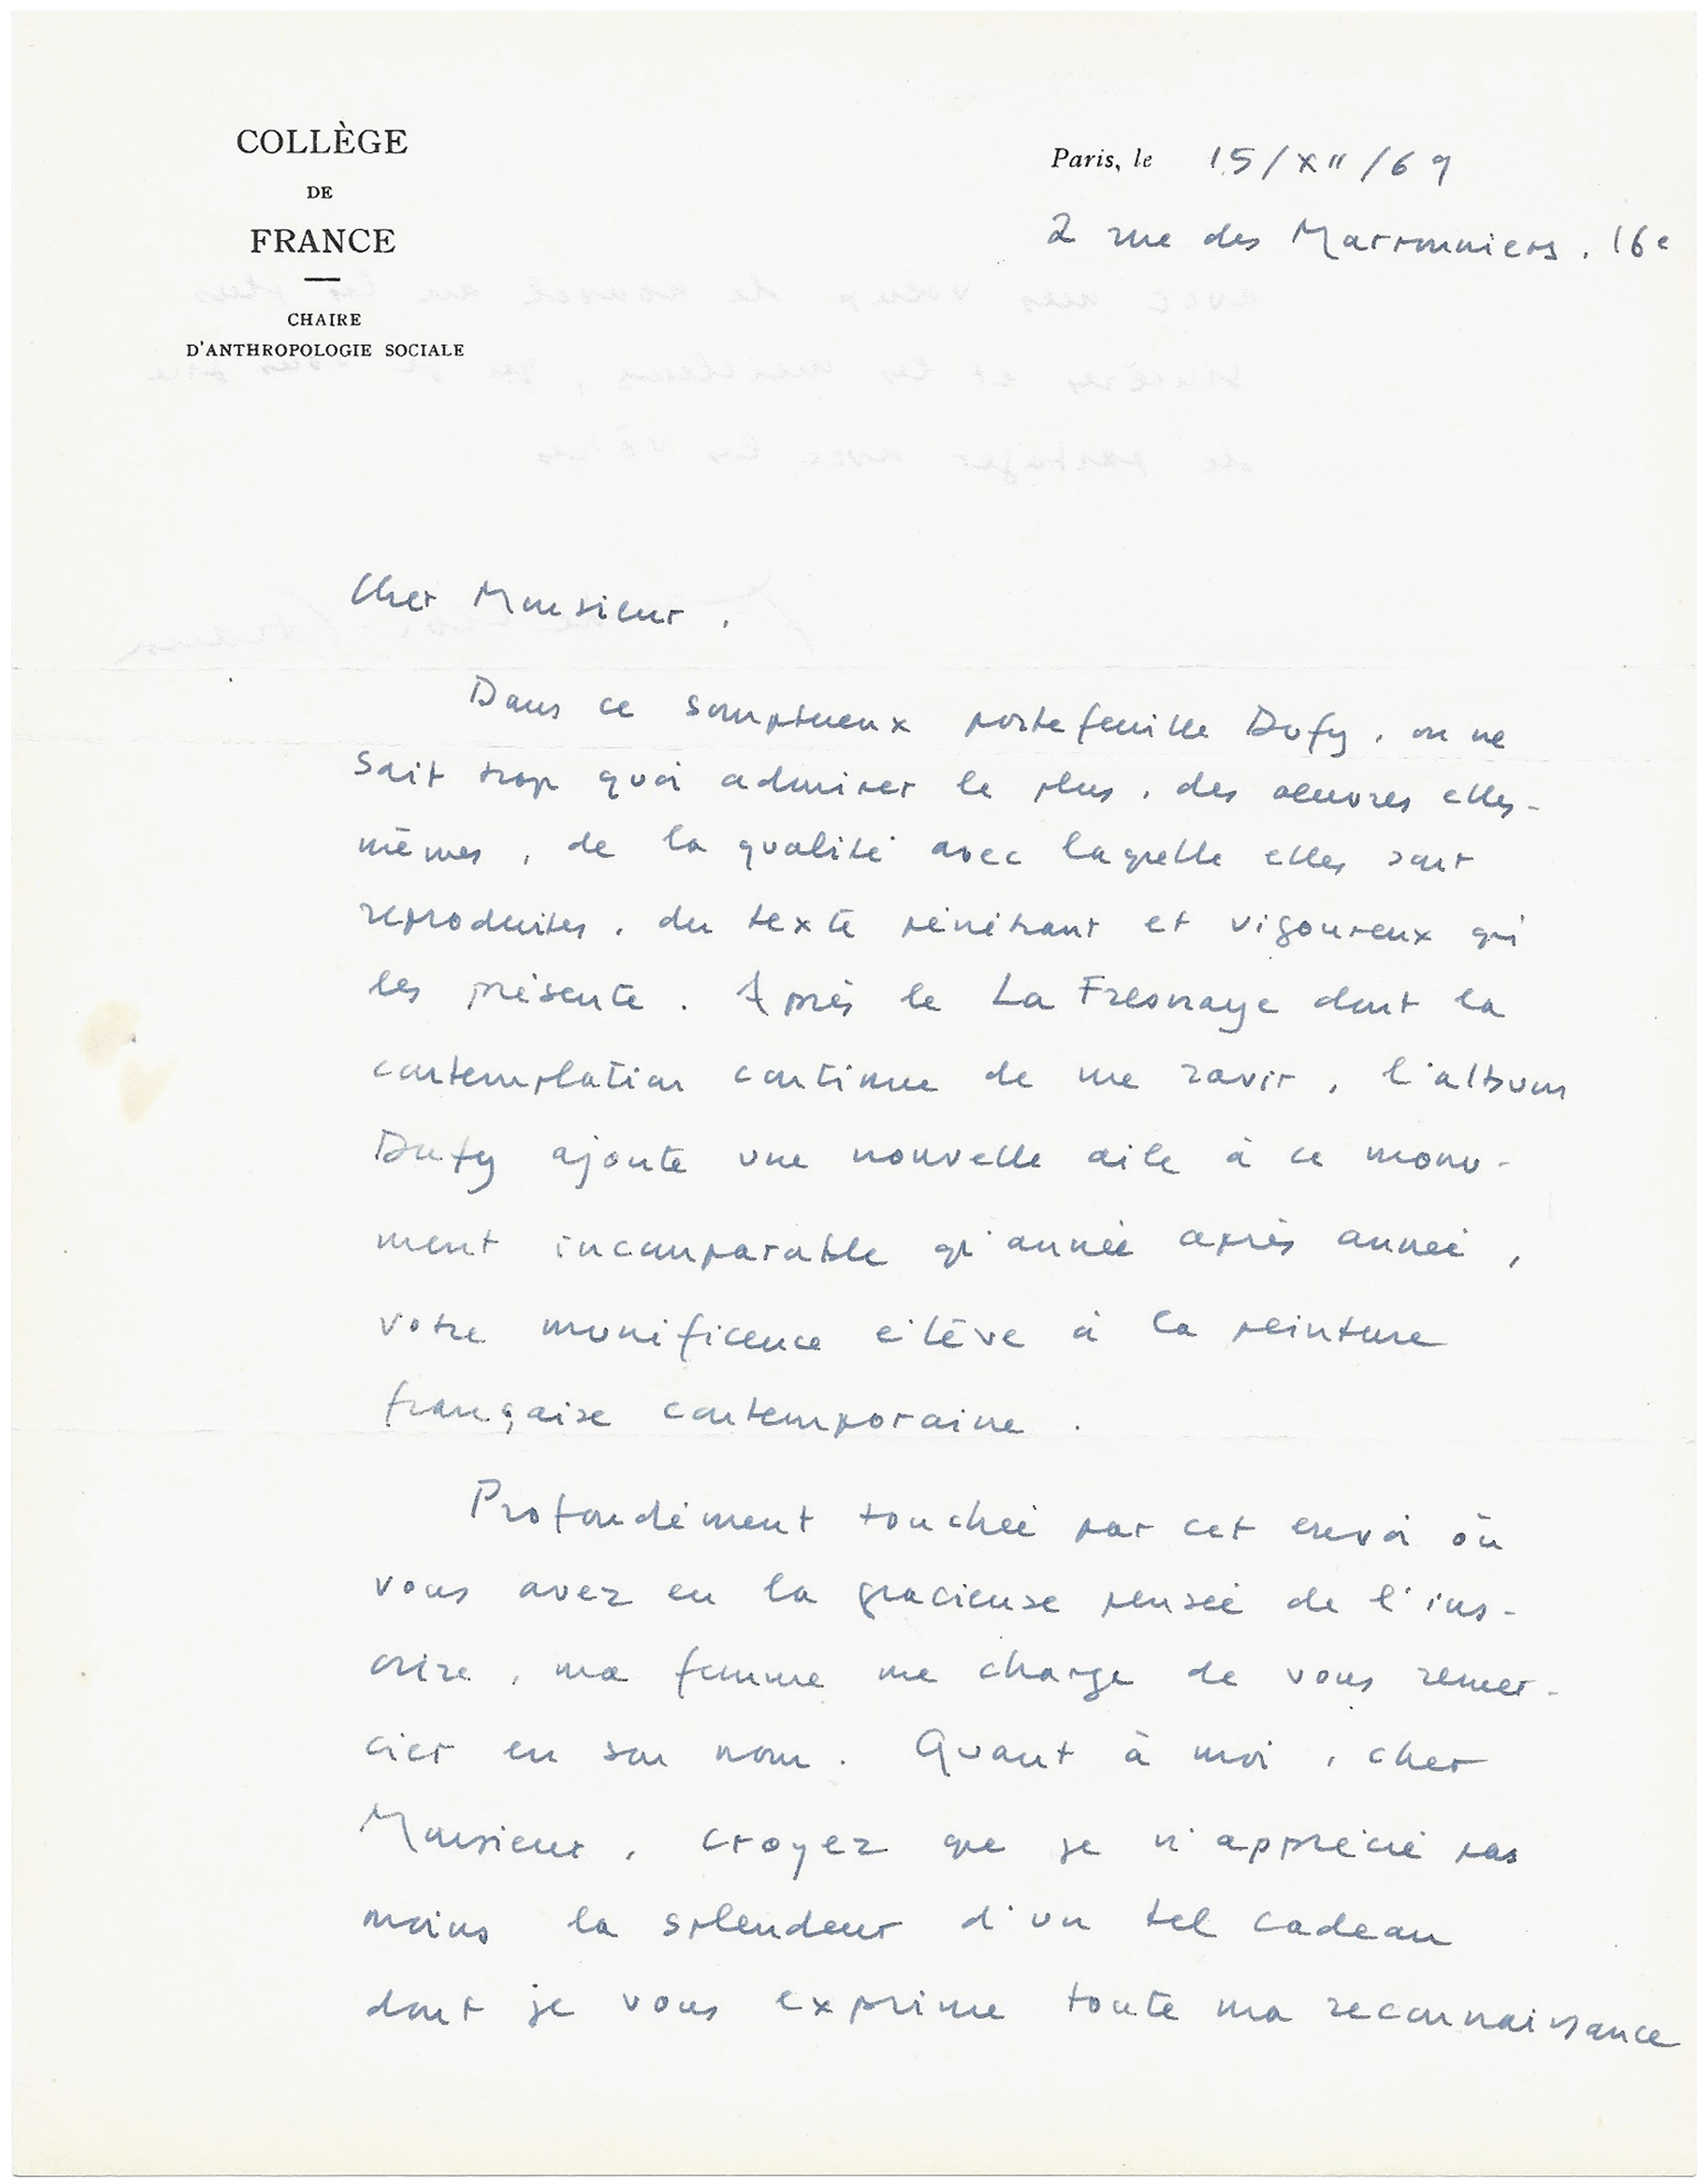 COLLÈGE
DE
FRANCE
CHAIRE
D'ANTHROPOLOGIE SOCIALE
Paris, le 15/XII/69
2 rue des Marronniers, 16e
Cher Monsieur,
Dans ce somptueux portefeuille Dufy, on ne
sait trop quoi admirer le plus, des oeuvres elles-
mêmes, de la qualité avec laquelle elles sont
reproduites, du texte pénétrant et vigoureux qui
les présente. Après le La Fresnaye dont la
contemplation continue de me ravir, l'album
Dufy ajoute une nouvelle aile à ce monu-
ment incomparable qu'année après année,
votre munificence élève à la peinture
française contemporaine.
Profondément touchée par cet envoi où
vous avez eu la gracieuse pensée de l'ins-
crire, ma femme me charge de vous remer-
cier en son nom. Quant à moi, cher
Monsieur, croyez que je n'apprécie pas
moins la splendeur d'un tel cadeau
dont je vous exprime toute ma reconnaissance
avec mes voeux de nouvel an les plus
sincères et les meilleurs, que je vous prie
de partager avec les vôtres